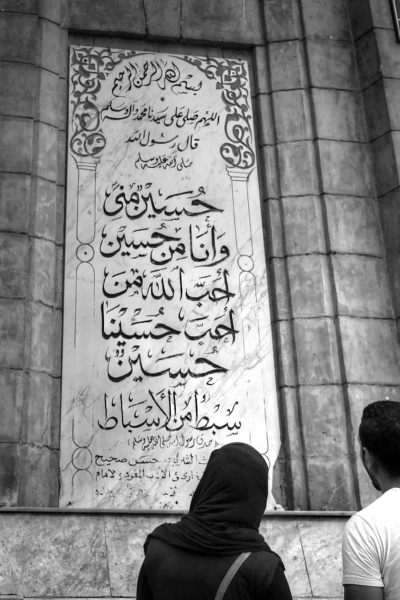 بسم الله الرحمن الرحيم
اللهم صلى على سيدنا محمد وآله وسلم
قال رسول الله
صلى الله عليه وسلم
حُسَين منى
وأنا من حُسَين
أحَبَّ الله من
أحَبَّ حُسَينا
حُسَين
سبط من الأسباط
صدق رسول الله صلى الله عليه وسلم
حسن صحيح
فى الأدب المفرد